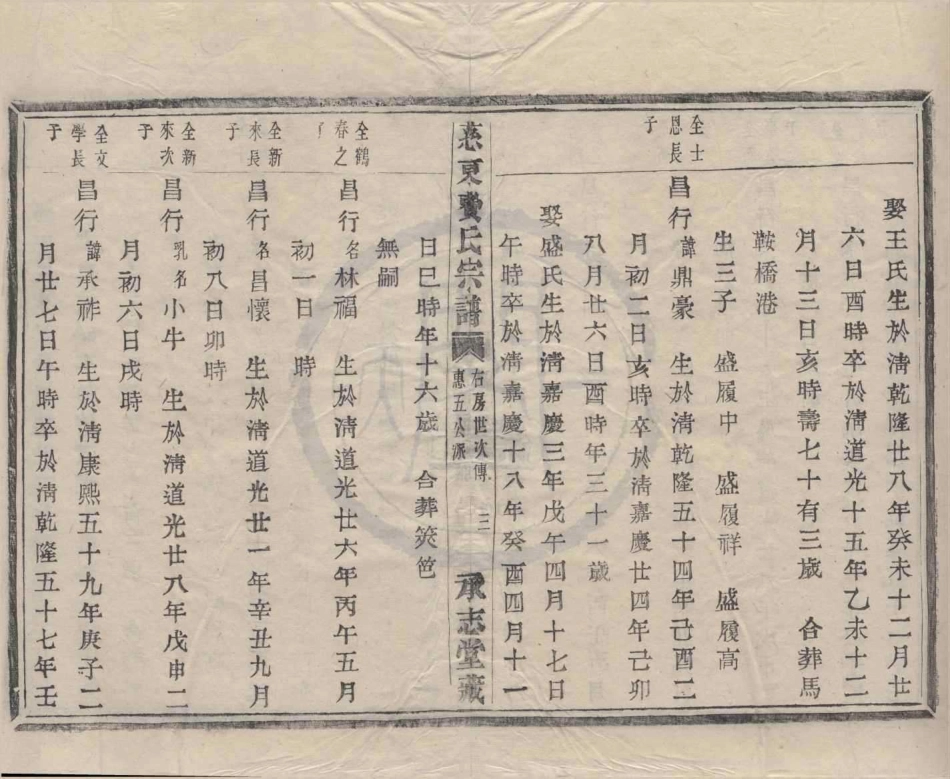 娶王氏生於清乾隆廿八年癸未十二月廿
六日酉時卒於清道光十五年乙未十二
月十三日亥時壽七十有三歲　合葬馬
鞍橋港
生三子　盛履中　盛履祥　盛履高
仝士
恩長
子
昌行諱鼎豪　生於清乾隆五十四年己酉二
月初二日亥時卒於清嘉慶廿四年己卯
八月廿六日酉時年三十一歲
娶盛氏生於清嘉慶三年戊午四月十七日
午時卒於清嘉慶十八年癸酉四月十一
慈東費氏宗譜
右房世次傳
惠五公派
三
承志堂藏
日巳時年十六歲　合葬筴笆
無嗣
仝鶴
春之
子
昌行名林福　生於清道光廿六年丙午五月
初一日　時
仝新
來長
子
昌行名昌懷　生於清道光廿一年辛丑九月
初八日卯時
仝新
來次
子
昌行乳名小牛　生於清道光廿八年戊申二
月初六日戌時
仝文
學長
子
昌行諱承祚　生於清康熙五十九年庚子二
月廿七日午時卒於清乾隆五十七年壬